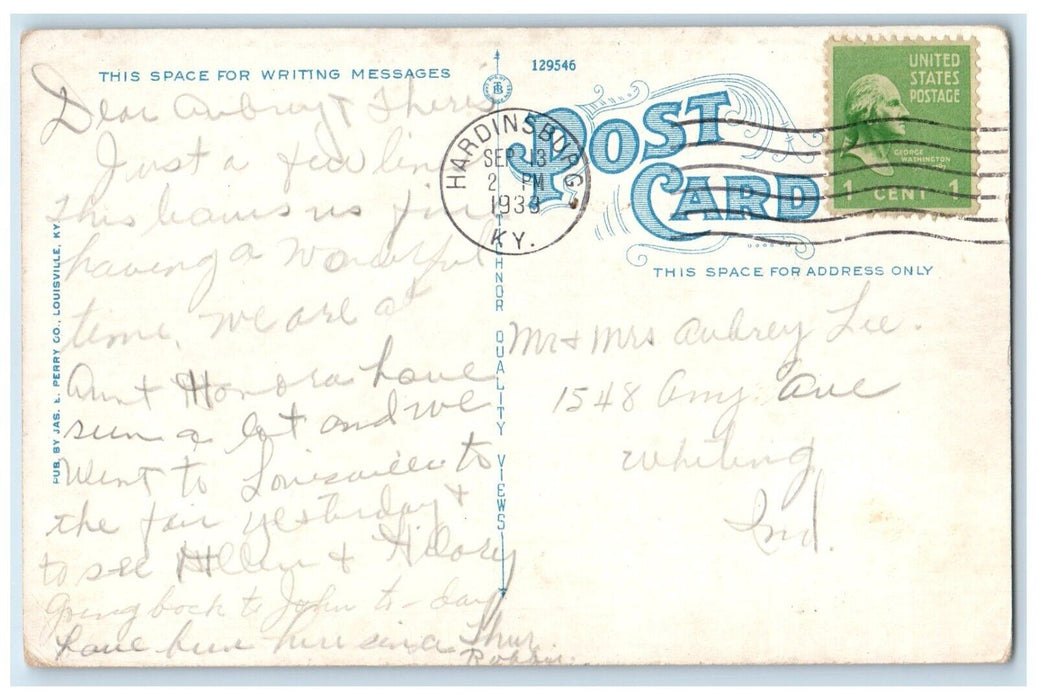 THIS SPACE FOR WRITING MESSAGES
Dear Aubrey &
Just a few lines
this leaves us fine
having a wonderful
time. We are at
Aunt Honora have
seen a lot and we
went to Louisville to
the fair yesterday &
to see Allen & Hilary
Going back to John to-day
have been here since Thur.
PUB. BY JAS. E. PERRY CO., LOUISVILLE, KY.
129546
TICHNOR QUALITY VIEWS
POST
CARD
HARDINSBURG
SEP 13
2 PM
1938
KY.
UNITED
STATES
POSTAGE
GEORGE
WASHINGTON
1 CENT 1
THIS SPACE FOR ADDRESS ONLY
Mr & Mrs Aubrey Lee.
1548 Amy Ave
Whiting
Ind.